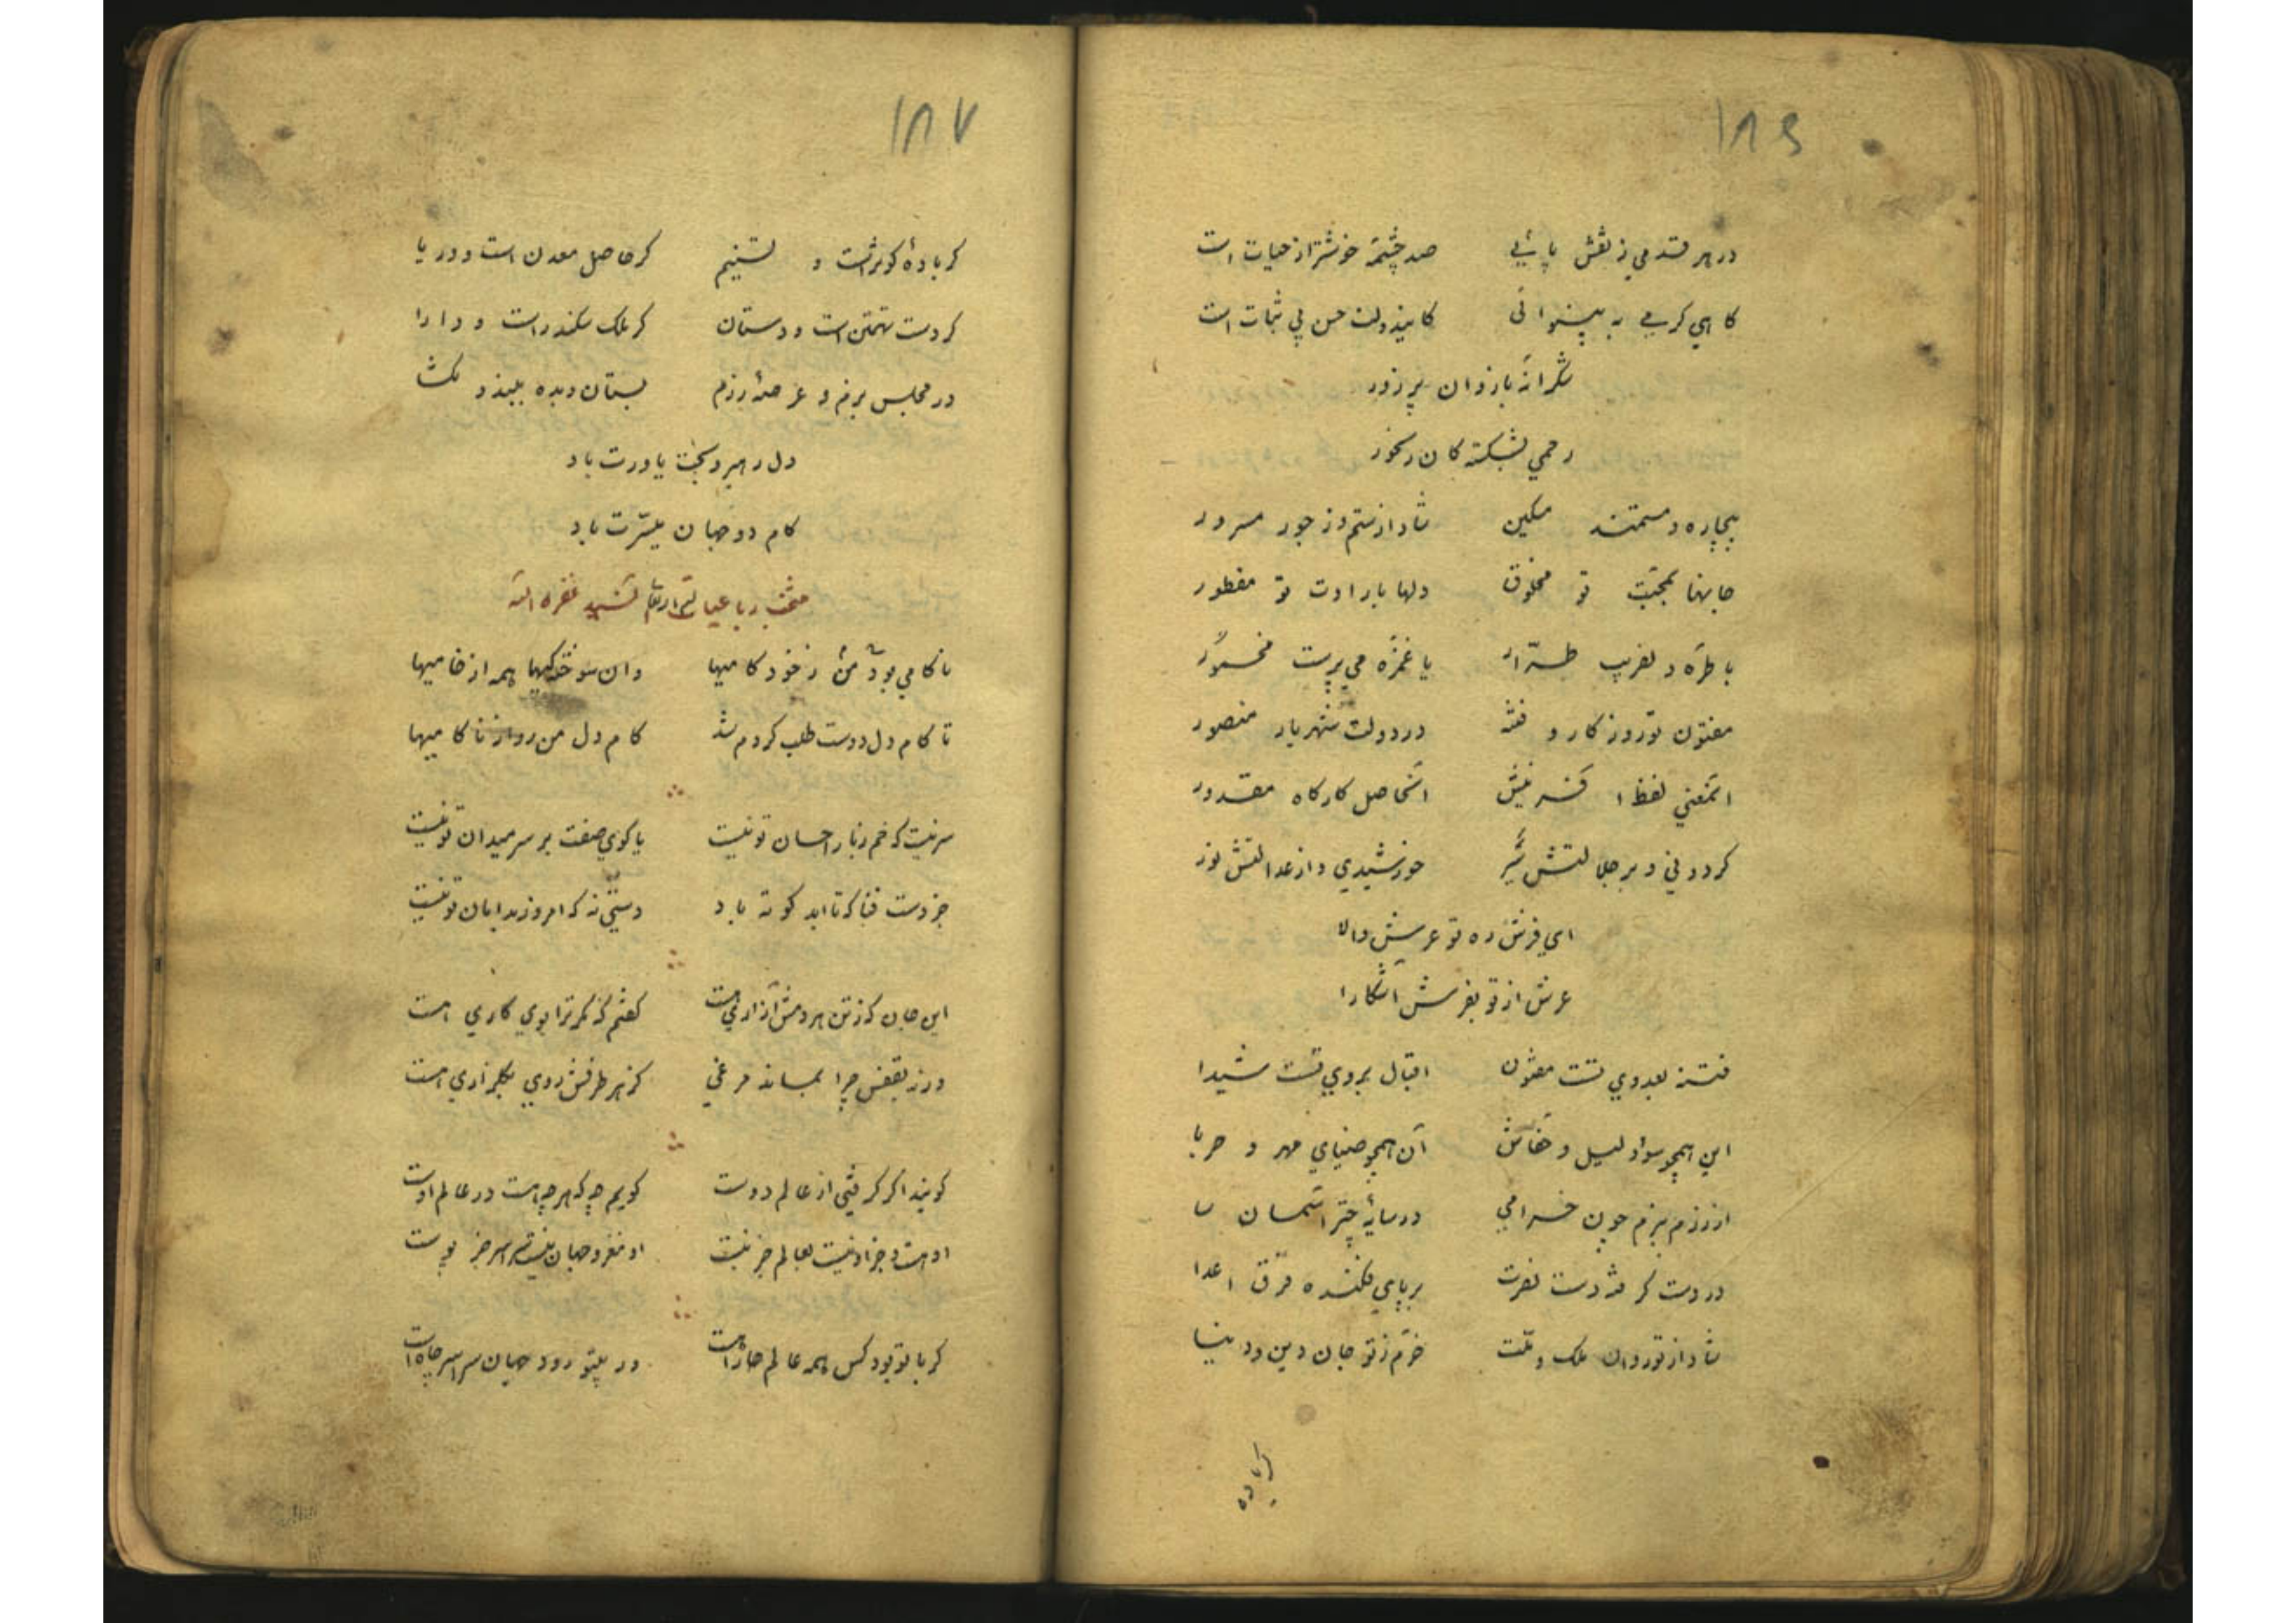 ۱۸۶
در هر قدمي ز نقش پائي صد چشمهٔ خوشتر از حیات است
کاهي کرمي به بینوائی کاینه دولت حسن بی ثبات است
شکرانهٔ بازوان پر زور
رحمي بشکستکان رنجور
بیچاره و مستمند مسکین شاد از ستم و ز جور مسرور
جانها بمحبّت تو مخلوق دلها بارادت تو مفطور
با طرّه دلفریب طرّار با غمزه می پرست مخمور
مفتون تو روزکار و فتنه در دولت شهریار منصور
آنمعني لفظ آفرینش آنحاصل کارکاه مقدور
کردوني و بر جلالتش سیر خورشیدي و از عدالتش نور
اي فرش ره تو عرش والا
عرش از تو بفرش آشکارا
فتنه بعدوي تست مفتون اقبال بروي تست شیدا
این همچو سواد لیل و خفاش آن همچو ضیاي مهر و حربا
از رزم ببزم چون خرامي در سایهٔ چتر آسمان سا
در دست کرفته دست نصرت بر پاي فکنده فرق اعدا
شاد از تو روان ملک و ملّت خرّم ز تو جان دین و دنیا
کر باده
۱۸۷
کر بادهٔ کوثر است و تسنیم کر حاصل معدن است و دریا
کر دست تهمتن است و دستان کر ملک سکندر است و دارا
در مجلس بزم و عرصهٔ رزم بستان و بده ببند و بکشا
دل رهبر و بخت یاورت باد
کام دو جهان میسّرت باد
منتخب رباعیات غفره الله
ناکامي بود من ز خود کامیها وان سوختکیها همه از خامیها
تا کام دل دوست طلب کردم شد کام دل من روا ز ناکامیها
سر نیست که خم ز بار احسان تو نیست یا کوي صفت بر سر میدان تو نیست
جز دست فنا که تا ابد کوته باد دستي نه که امروز بدامان تو نیست
این جان که ز تن هر دمش آزاري هست کفتم که مکر ترا بوي کاري هست
ورنه بقفس چرا بماند مرغي کز هر طرفش روي بکلزاري هست
کویند اکر کرفتي از عالم دوست کویم چه که هر چه هست در عالم اوست
او هست و جز او نیست بعالم جز نیست او مغز و جهان نیست سراسر جز پوست
کر با تو بود کس همه عالم جاه است ور بیتو رود جهان سراسر چاه است